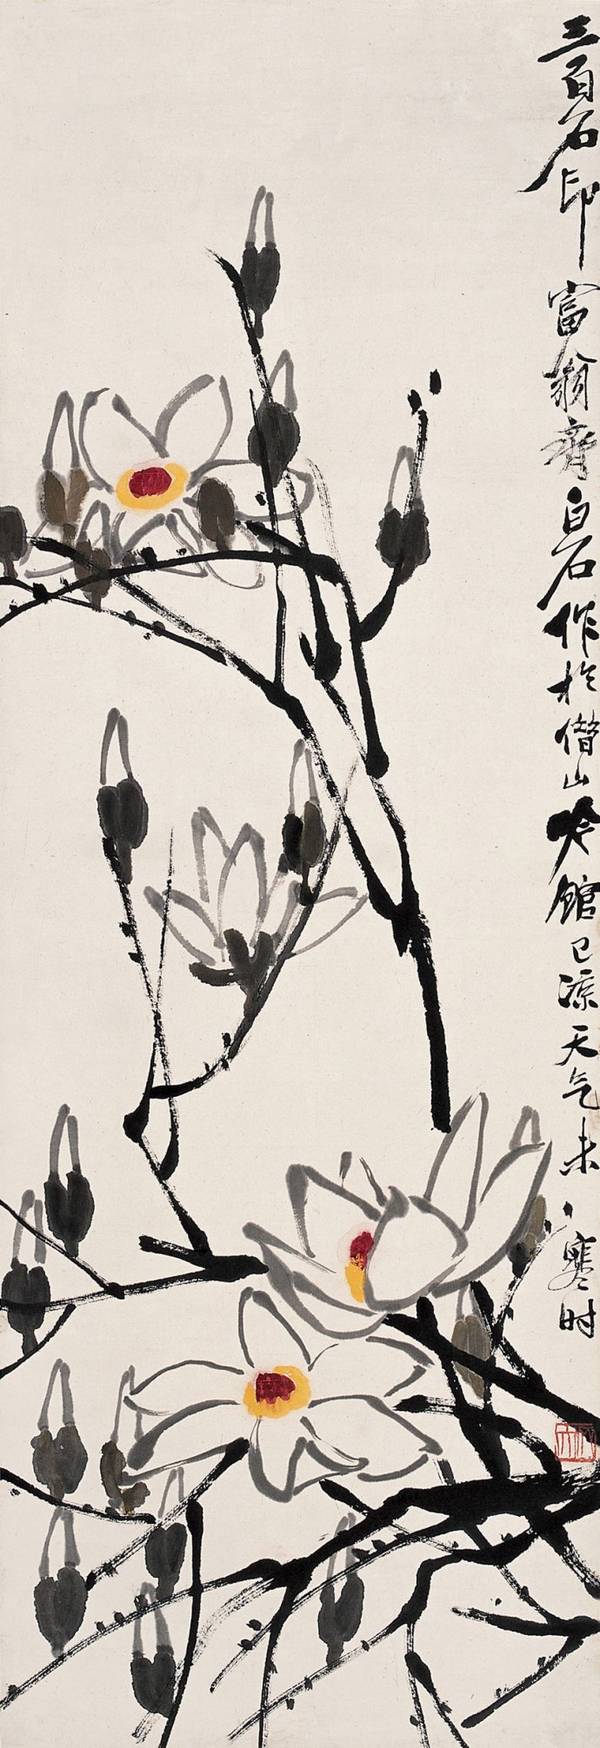 三百石印富翁齊白石作於借山吟館已涼天气未寒时